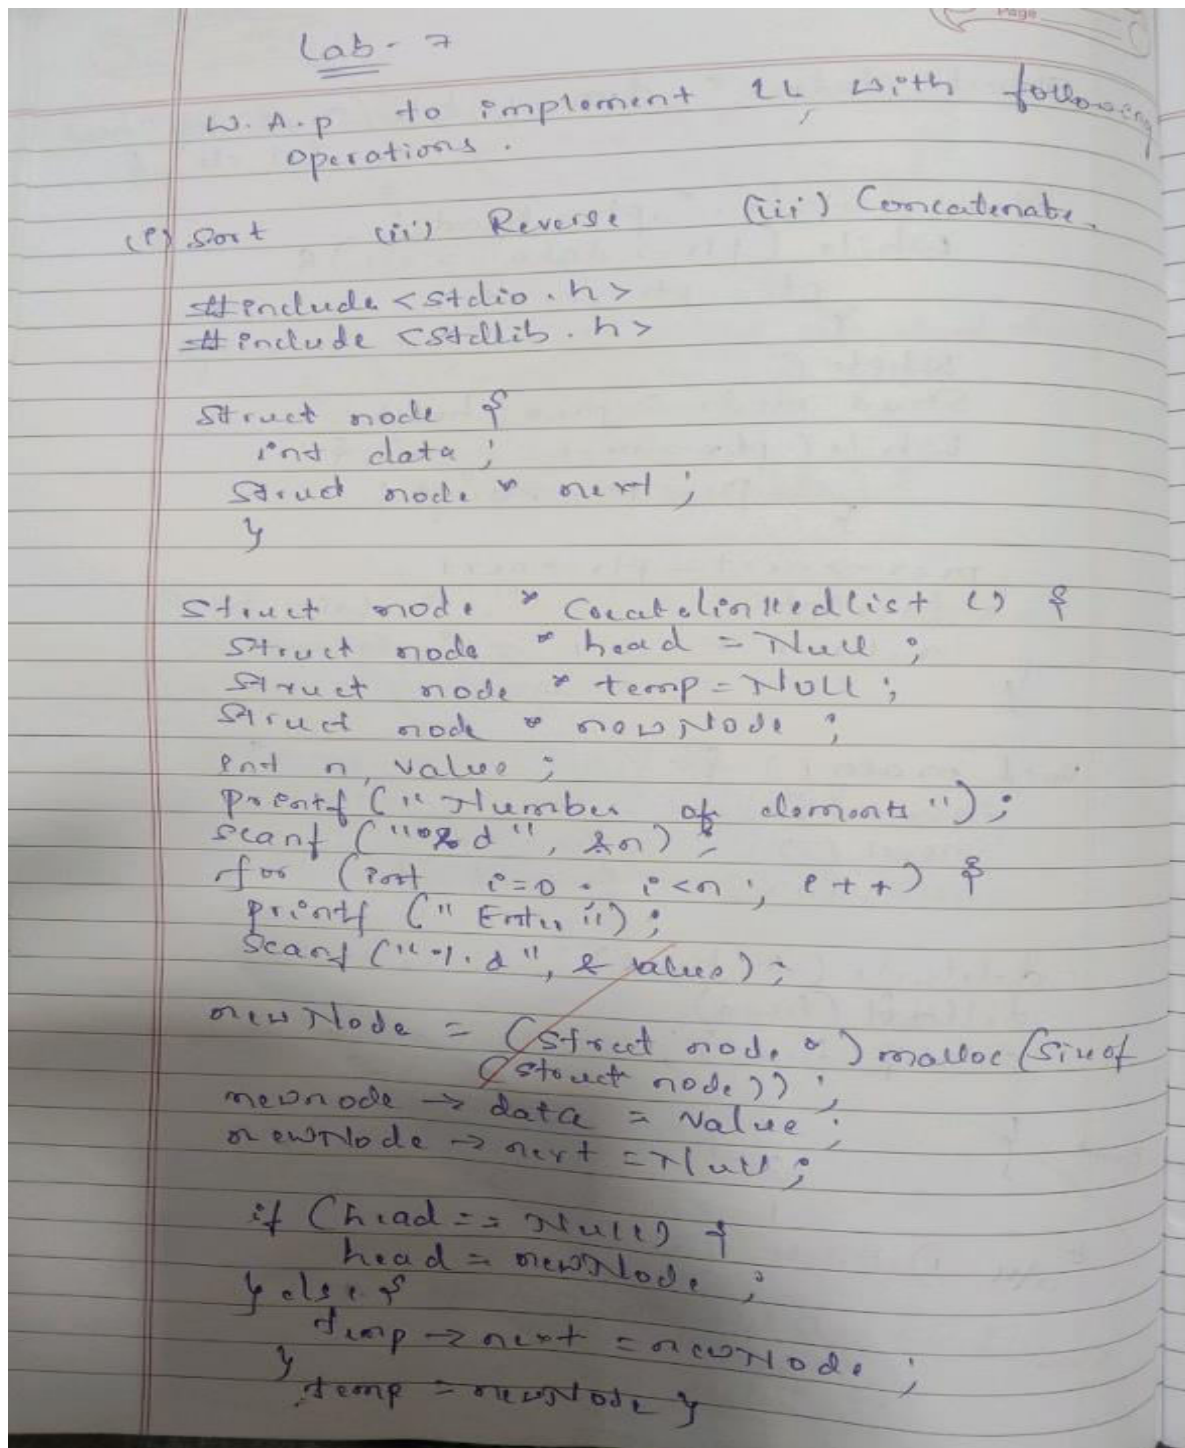 Page
Lab - 7
W.A.P to implement LL with following
operations.
(i) Sort (ii) Reverse (iii) Concatenate.
#include <stdio.h>
#include <stdlib.h>
struct node {
int data ;
struct node * next ;
}
struct node * Createlinkedlist () {
struct node * head = Null ;
struct node * temp = NULL ;
struct node * newNode ;
int n, value ;
printf ("Number of elements") ;
scanf ("%d", &n) ;
for (int i=0 ; i<n ; i++) {
printf ("Enter") ;
scanf ("%d", & value) ;
newNode = (struct node *) malloc (sizeof
(struct node)) ;
newnode -> data = value ;
newNode -> next = Null ;
if (head == Null) {
head = newNode ;
} else {
temp -> next = newNode ;
}
temp = newNode }